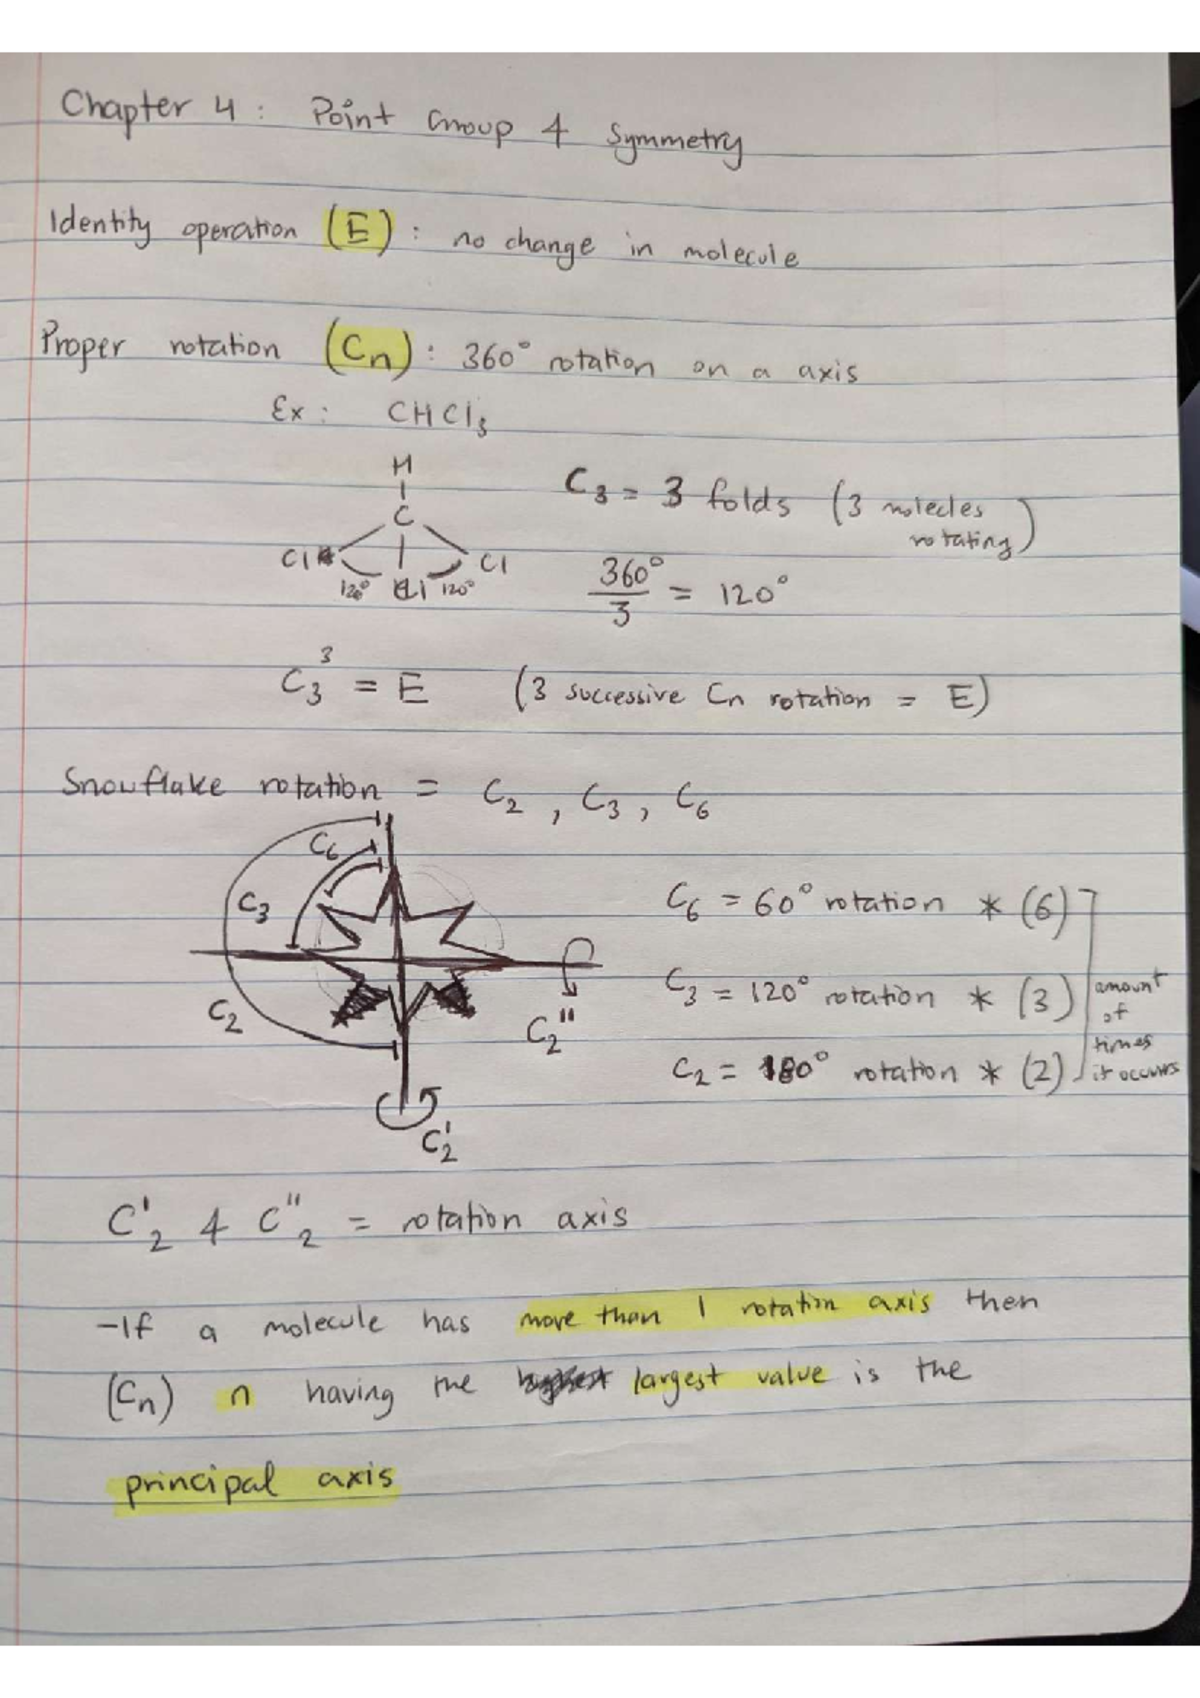 Chapter 4 : Point Group & Symmetry
Identity operation (E) : no change in molecule
Proper rotation (Cn) : 360° rotation on a axis
Ex : CHCl₃
H
C
Cl Cl Cl
120° 120°
C₃ = 3 folds (3 molecles rotating)
360° / 3 = 120°
C₃³ = E (3 successive Cn rotation = E)
Snowflake rotation = C₂ , C₃ , C₆
C₆
C₃
C₂
C₂"
C₂'
C₆ = 60° rotation * (6)
C₃ = 120° rotation * (3)
C₂ = 180° rotation * (2)
amount
of
times
it occurs
C'₂ & C"₂ = rotation axis
-If a molecule has more than 1 rotation axis then
(Cn) n having the largest value is the
principal axis